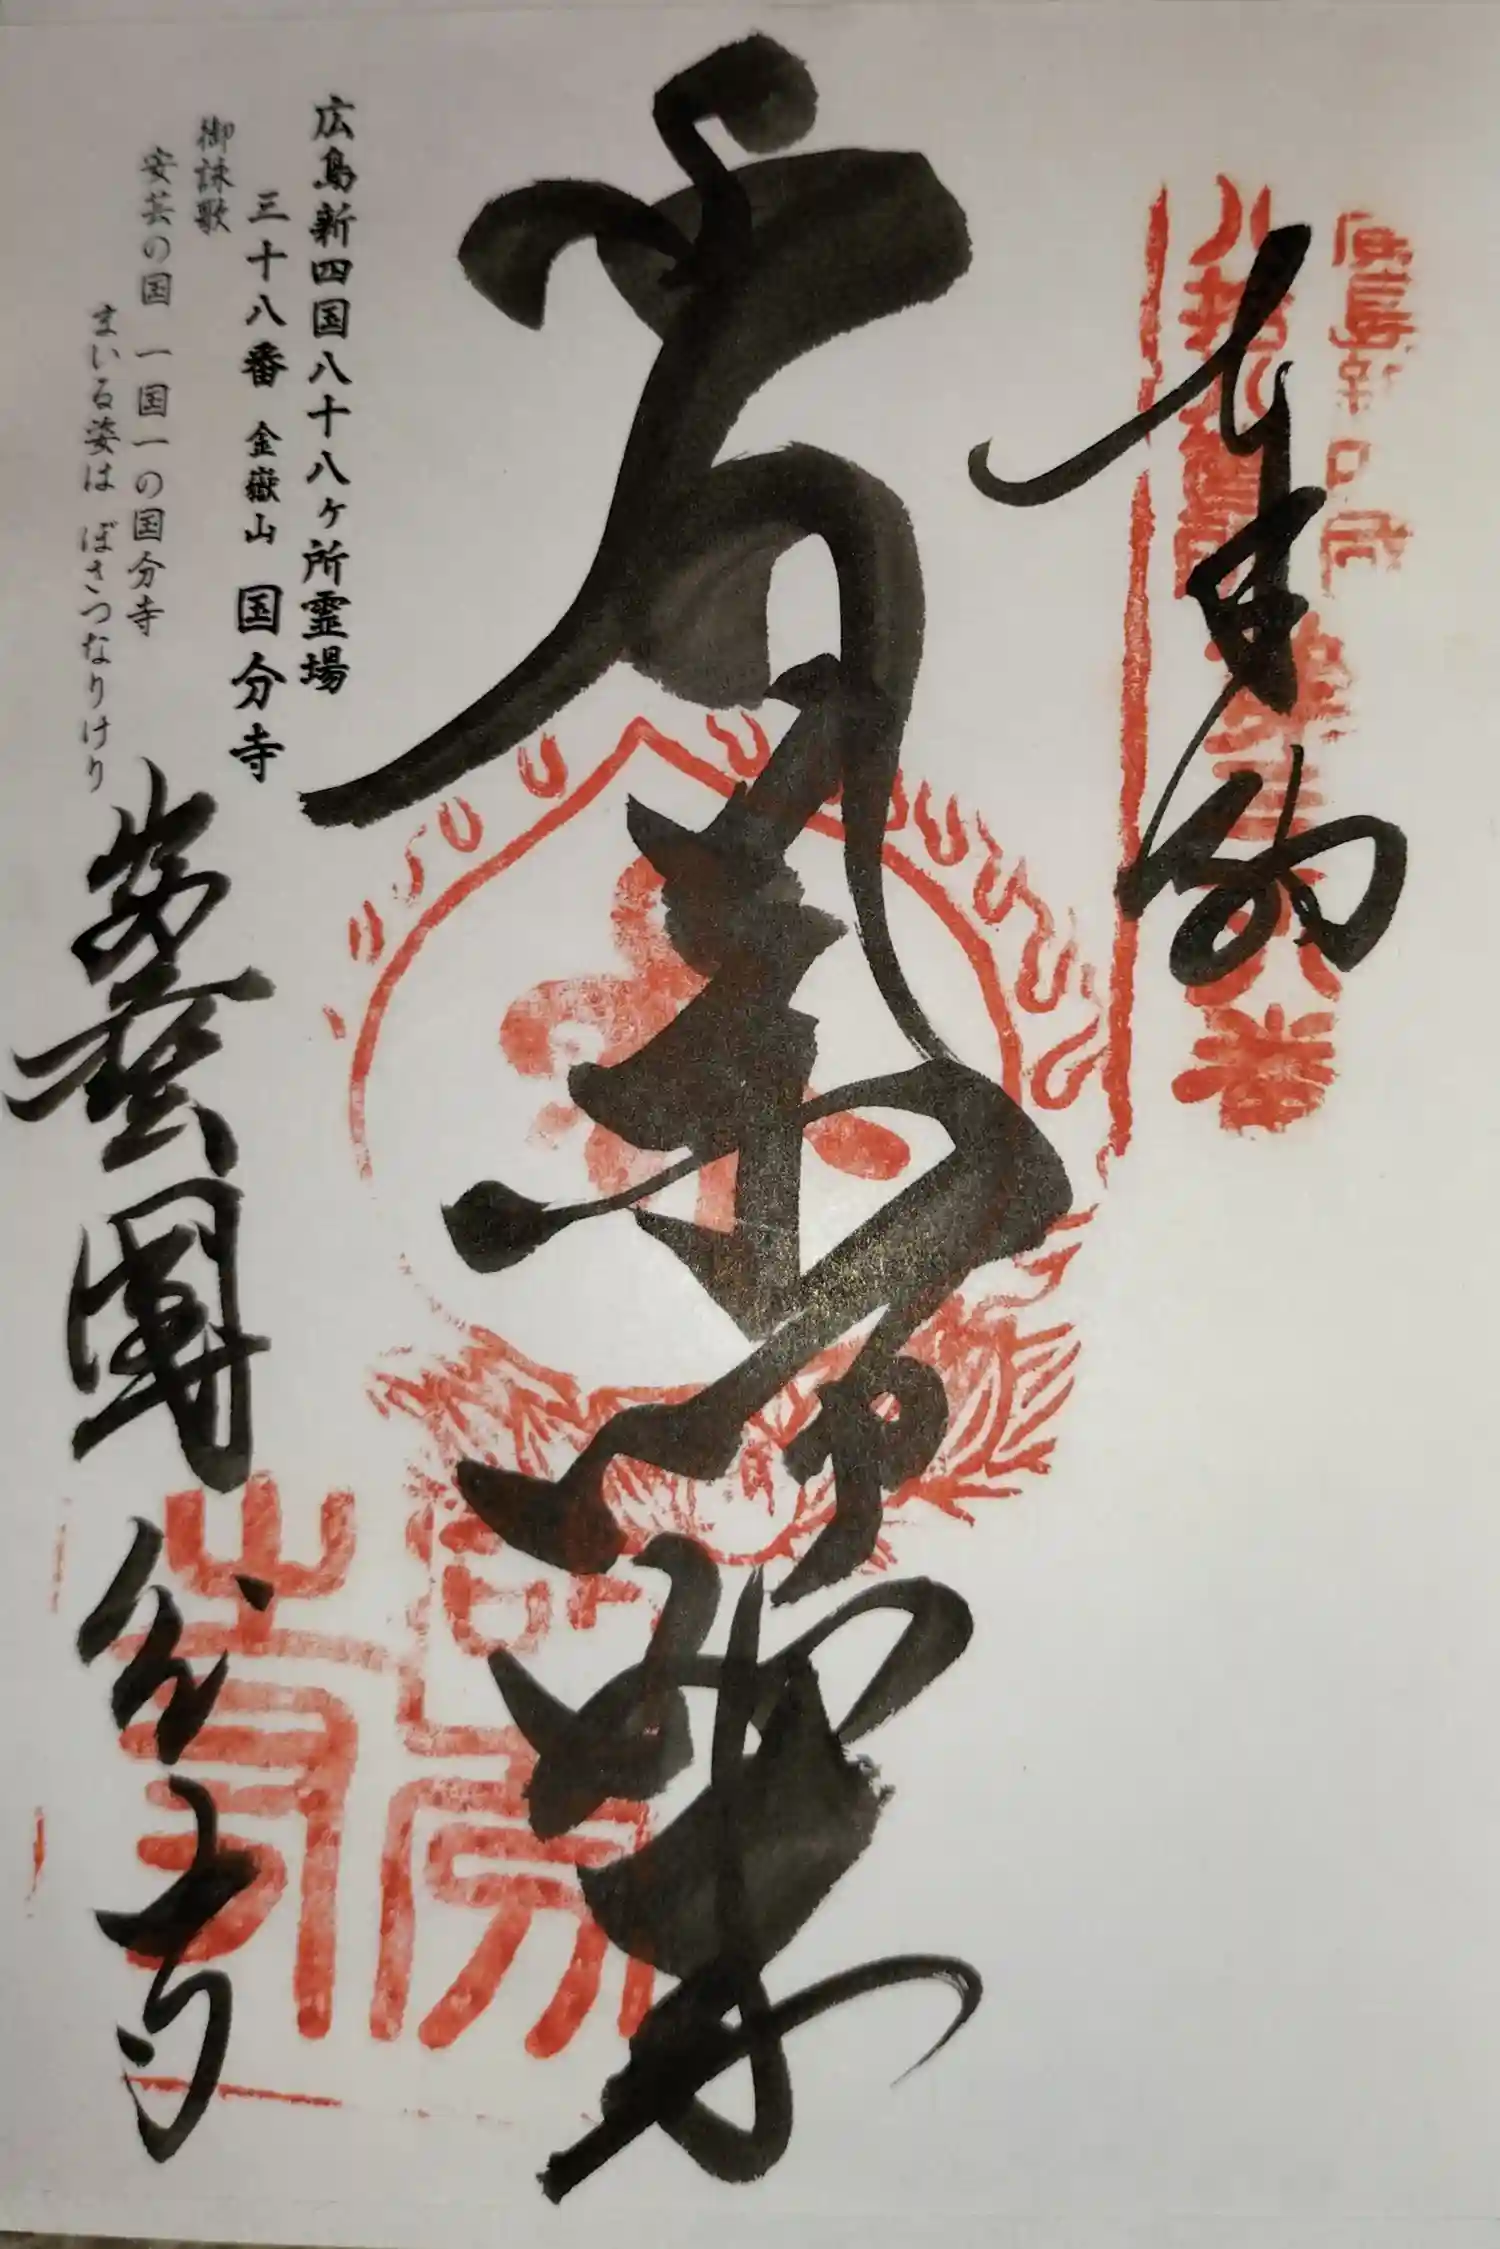 奉納
八拾八箇所
第三十八番
薬師如来
広島新四国八十八ヶ所霊場
三十八番 金嶽山 国分寺
御詠歌
安芸の国 一国一の国分寺
まいる姿は ぼさつなりけり
安藝國分寺